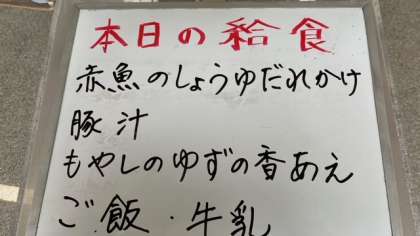 本日の給食
赤魚のしょうゆだれかけ
豚汁
もやしのゆずの香あえ
ご飯・牛乳